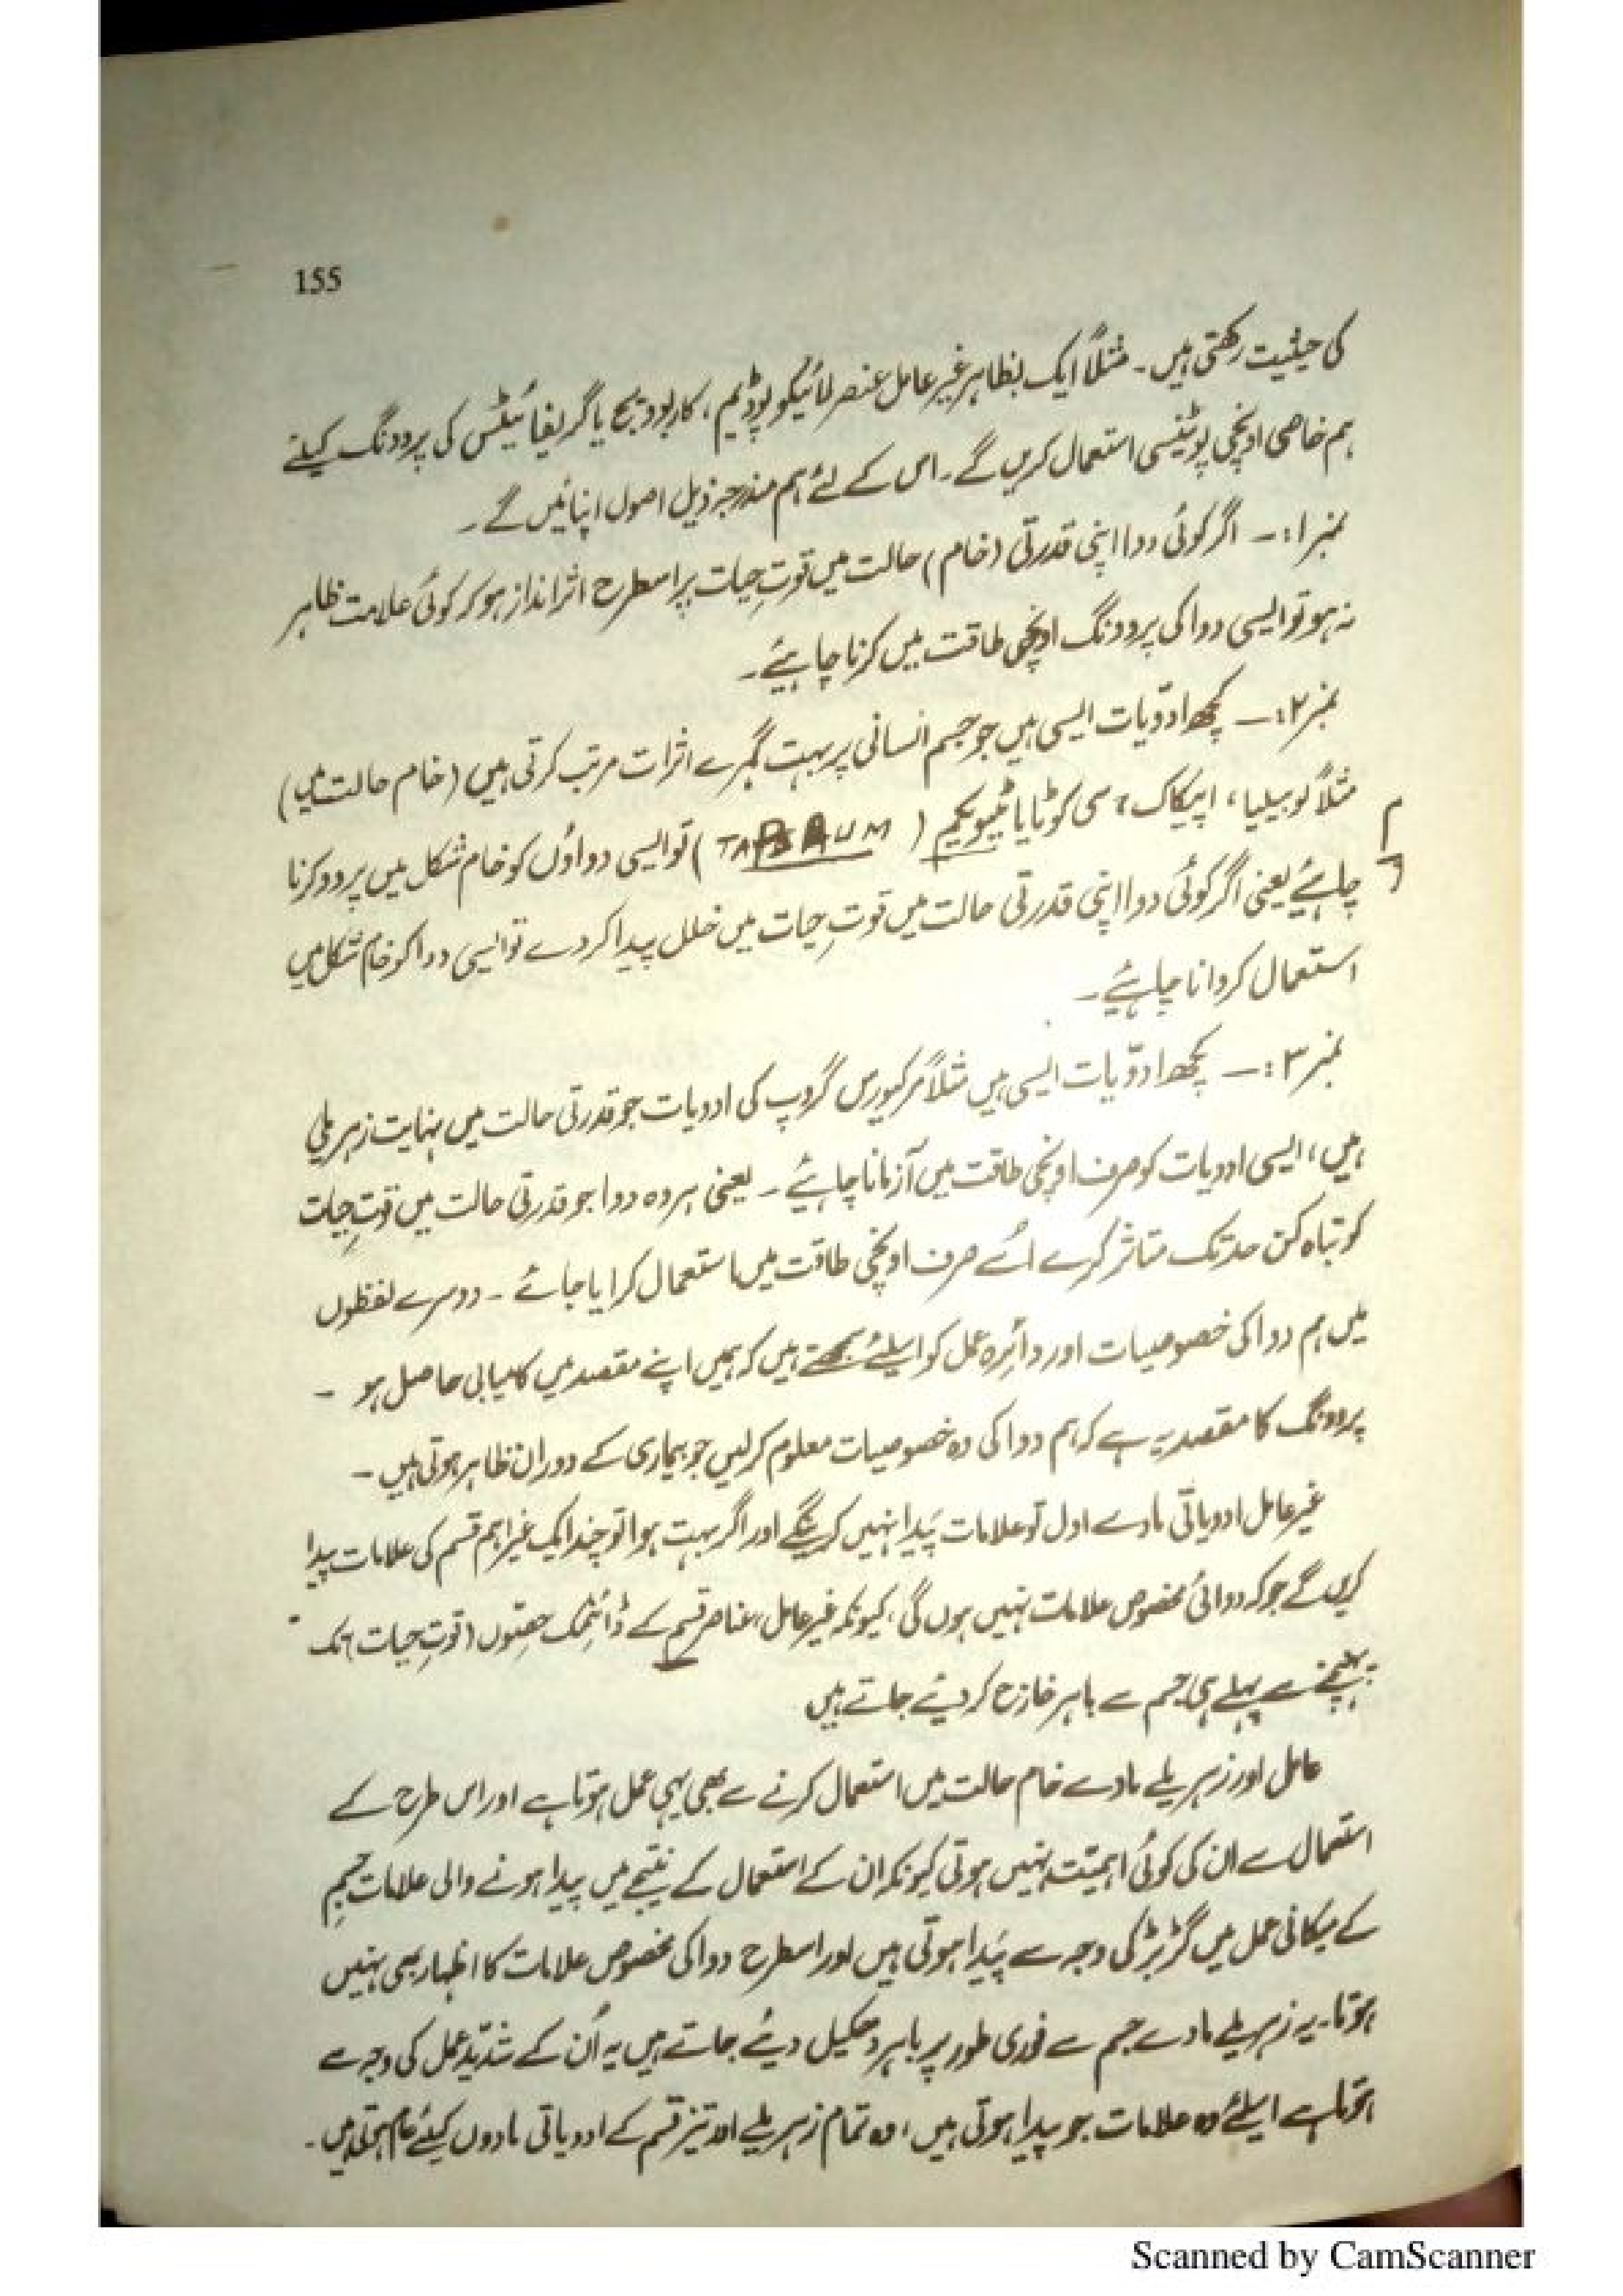 155
کی حیثیت رکھتی ہیں۔ مثلاً ایک بظاہر غیر عامل عنصر لائیکوپوڈیم، کاربوویج یا گریفائیٹس کی پروونگ کیلئے
ہم خاصی اونچی پوٹینسی استعمال کریں گے۔ اس کے لئے ہم مندرجہ ذیل اصول اپنائیں گے۔
نمبر ۱:۔ اگر کوئی دوا اپنی قدرتی (خام) حالت میں قوتِ حیات پر اسطرح اثر انداز ہو کر کوئی علامت ظاہر
نہ ہو تو ایسی دوا کی پروونگ اونچی طاقت میں کرنا چاہیئے۔
نمبر ۲:۔ کچھ ادویات ایسی ہیں جو جسم انسانی پر بہت گہرے اثرات مرتب کرتی ہیں (خام حالت میں)
مثلاً لوبیلیا، اپیکاک، سی کوٹا یا ( ) تو ایسی دواؤں کو خام شکل میں پروو کرنا
چاہیئے یعنی اگر کوئی دوا اپنی قدرتی حالت میں قوتِ حیات میں خلل پیدا کر دے تو ایسی دوا کو خام شکل میں
استعمال کروانا چاہیئے۔
نمبر ۳:۔ کچھ ادویات ایسی ہیں مثلاً مرکیورس گروپ کی ادویات جو قدرتی حالت میں نہایت زہریلی
ہیں، ایسی ادویات کو صرف اونچی طاقت میں آزمانا چاہیئے۔ یعنی ہر وہ دوا جو قدرتی حالت میں قوتِ حیات
کو تباہ کن حد تک متاثر کرے اُسے صرف اونچی طاقت میں استعمال کرایا جائے۔ دوسرے لفظوں
میں ہم دوا کی خصوصیات اور دائرہ عمل کو اسلئے سمجھتے ہیں کہ ہمیں اپنے مقصد میں کامیابی حاصل ہو۔
پروونگ کا مقصد یہ ہے کہ ہم دوا کی وہ خصوصیات معلوم کرلیں جو بیماری کے دوران ظاہر ہوتی ہیں۔
غیر عامل ادویاتی مادے اول تو علامات پیدا نہیں کرینگے اور اگر بہت ہوا تو چند ایک غیر اہم قسم کی علامات پیدا
کریں گے جو کہ دوائی مخصوص علامات نہیں ہوں گی، کیونکہ غیر عامل، عناصر قسم کے ڈائنمک حصوں (قوتِ حیات) تک
پہنچنے سے پہلے ہی جسم سے باہر خارج کر دیئے جاتے ہیں
عامل اور زہریلے مادے خام حالت میں استعمال کرنے سے بھی یہی عمل ہوتا ہے اور اس طرح کے
استعمال سے ان کی کوئی اہمیت نہیں ہوتی کیونکہ ان کے استعمال کے نتیجے میں پیدا ہونے والی علامات جسم
کے میکانی عمل میں گڑبڑ کی وجہ سے پیدا ہوتی ہیں اور اسطرح دوا کی مخصوص علامات کا اظہار بھی نہیں
ہوتا۔ یہ زہریلے مادے جسم سے فوری طور پر باہر دھکیل دیئے جاتے ہیں یہ اُن کے شدید عمل کی وجہ سے
ہوتا ہے اسلئے وہ علامات جو پیدا ہوتی ہیں، وہ تمام زہریلے اور تیز قسم کے ادویاتی مادوں کیلئے عام ہوتی ہیں۔
Scanned by CamScanner